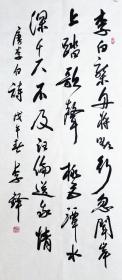 李白乘舟将欲行忽闻岸
上踏歌声桃花潭水
深千尺不及汪伦送我情
唐李白诗戊午秋